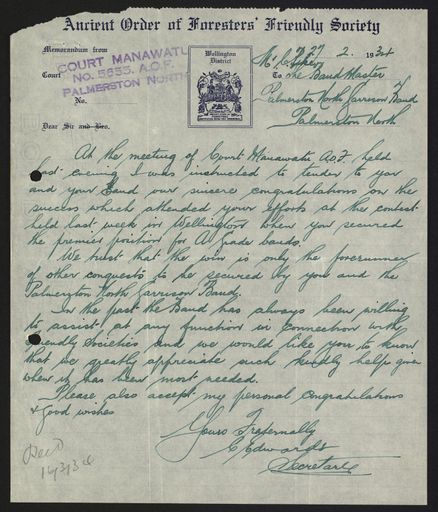 Ancient Order of Foresters' Friendly Society
Memorandum from
COURT MANAWATU
NO. 5655. A.O.F.
PALMERSTON NORTH
Court
No.
Wellington
District
27 2. 1934
Mr
To The Band Master
Palmerston North Garrison Band
Palmerston North
Dear Sir and Bro.
At the meeting of Court Manawatu A.O.F. held
last evening I was instructed to tender to you
and your Band our sincere congratulations on the
success which attended your efforts at the contest
held last week in Wellington when you secured
the premier position for A Grade bands.
We trust that the win is only the forerunner
of other conquests to be secured by you and the
Palmerston North Garrison Band.
In the past the Band has always been willing
to assist at any function in connection with
Friendly Societies and we would like you to know
that we greatly appreciate such kindly help given
when it has been most needed.
Please also accept my personal congratulations
& good wishes
Yours Fraternally
C Edwards
Secretary
Recd
14/3/34